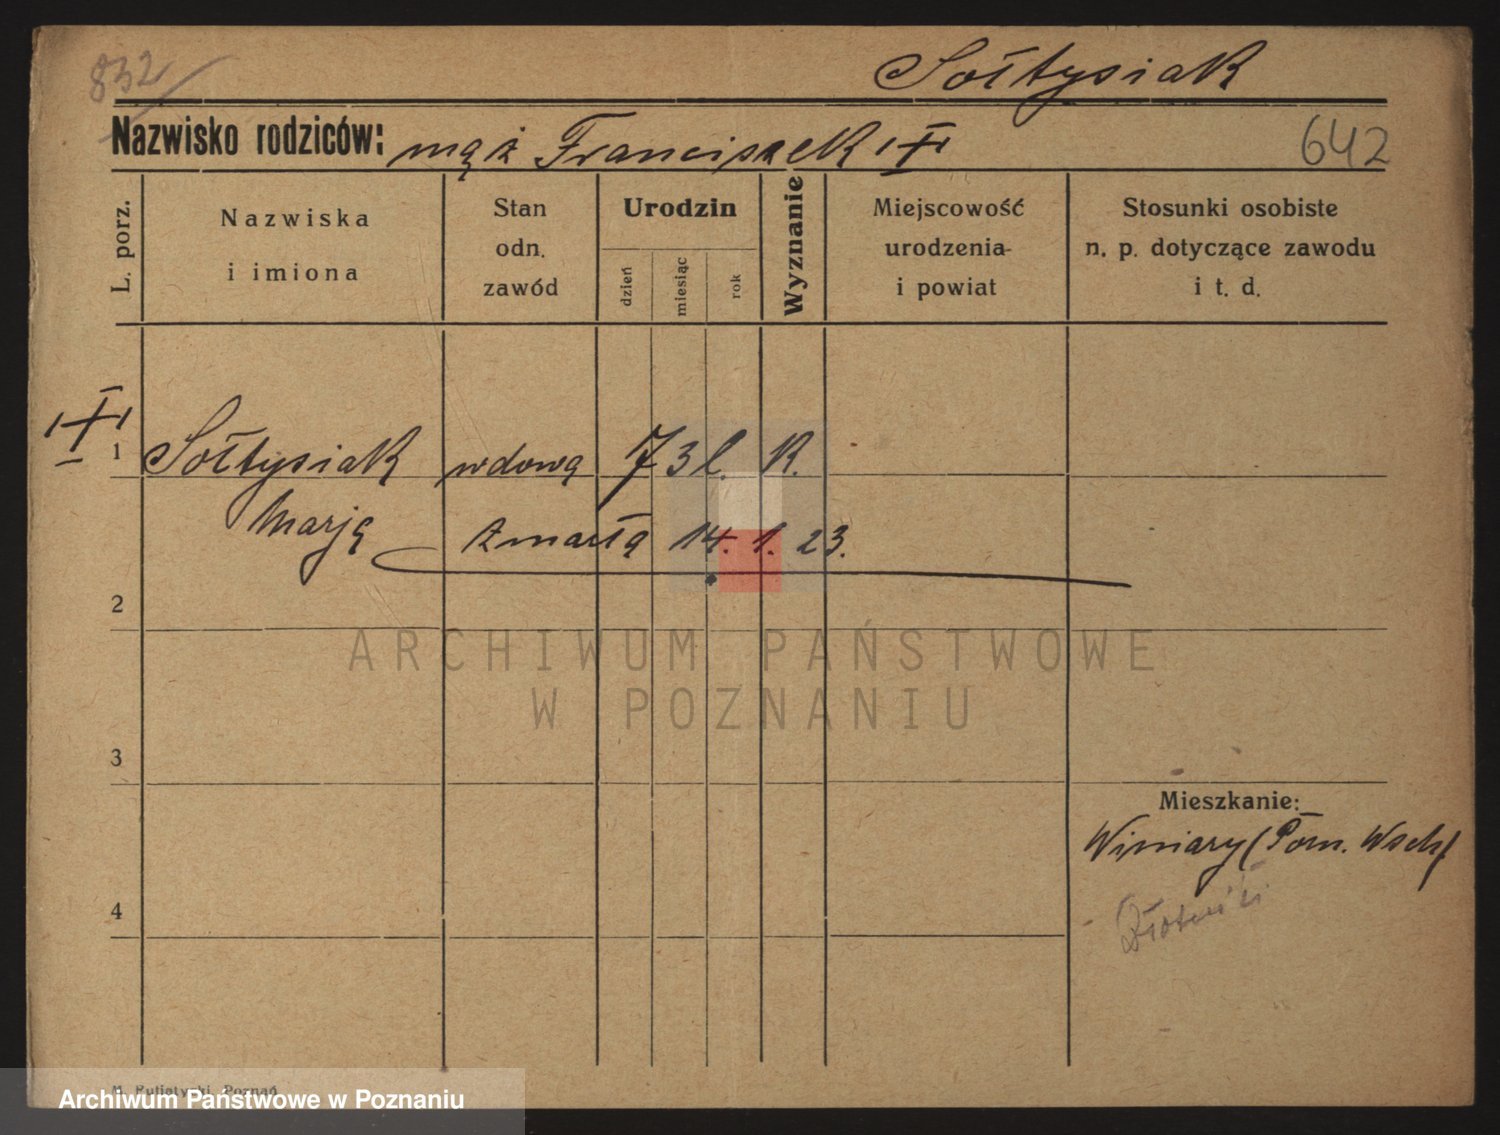 832
Sołtysiak
Nazwisko rodziców: mąż Franciszek
642
L. porz.
Nazwiska
i imiona
Stan
odn.
zawód
Urodzin
dzień
miesiąc
rok
Wyznanie
Miejscowość
urodzenia
i powiat
Stosunki osobiste
n. p. dotyczące zawodu
i t. d.
1
Sołtysiak wdowa 73 l. K.
Marja zmarła 14. 1. 23.
2
ARCHIWUM PAŃSTWOWE
W POZNANIU
3
Mieszkanie:
Winiary (Pozn. Wsch)
4
Poznań
Archiwum Państwowe w Poznaniu